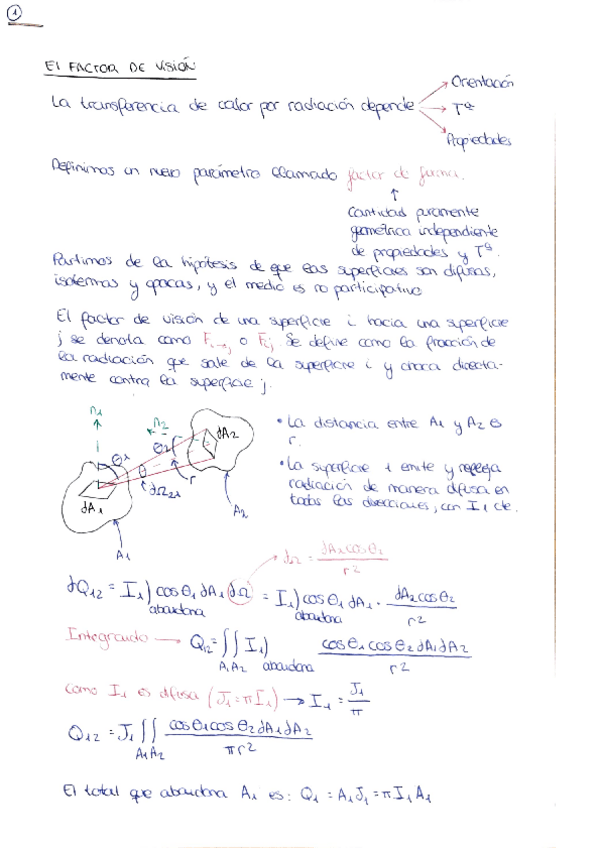 1
El FACTOR DE VISIÓN
La transferencia de calor por radiación depende
Orientación
Tª
Propiedades
Definimos un nuevo parámetro llamado factor de forma.
Cantidad puramente
geométrica independiente
de propiedades y Tª.
Partimos de la hipótesis de que las superficies son difusas,
isotermas y opacas, y el medio es no participativo
El factor de visión de una superficie i hacia una superficie
j se denota como F i→j o Fij. Se define como la fracción de
la radiación que sale de la superficie i y choca directa-
mente contra la superficie j.
n1
n2
θ1
θ2
θ
dA2
r
dΩ21
dA1
A2
A1
• La distancia entre A1 y A2 es
r.
• La superficie 1 emite y refleja
radiación de manera difusa en
todas las direcciones, con I1 cte.
dΩ = dA2cosθ2 / r²
dQ12 = I1)abandona cosθ1 dA1 dΩ = I1)abandona cosθ1 dA1 · dA2cosθ2 / r²
Integrando → Q12 = ∫∫A1A2 I1)abandona cosθ1cosθ2dA1dA2 / r²
como I1 es difusa (J1 = πI1) → I1 = J1 / π
Q12 = J1 ∫∫A1A2 cosθ1cosθ2dA1dA2 / πr²
El total que abandona A1 es: Q1 = A1J1 = πI1A1